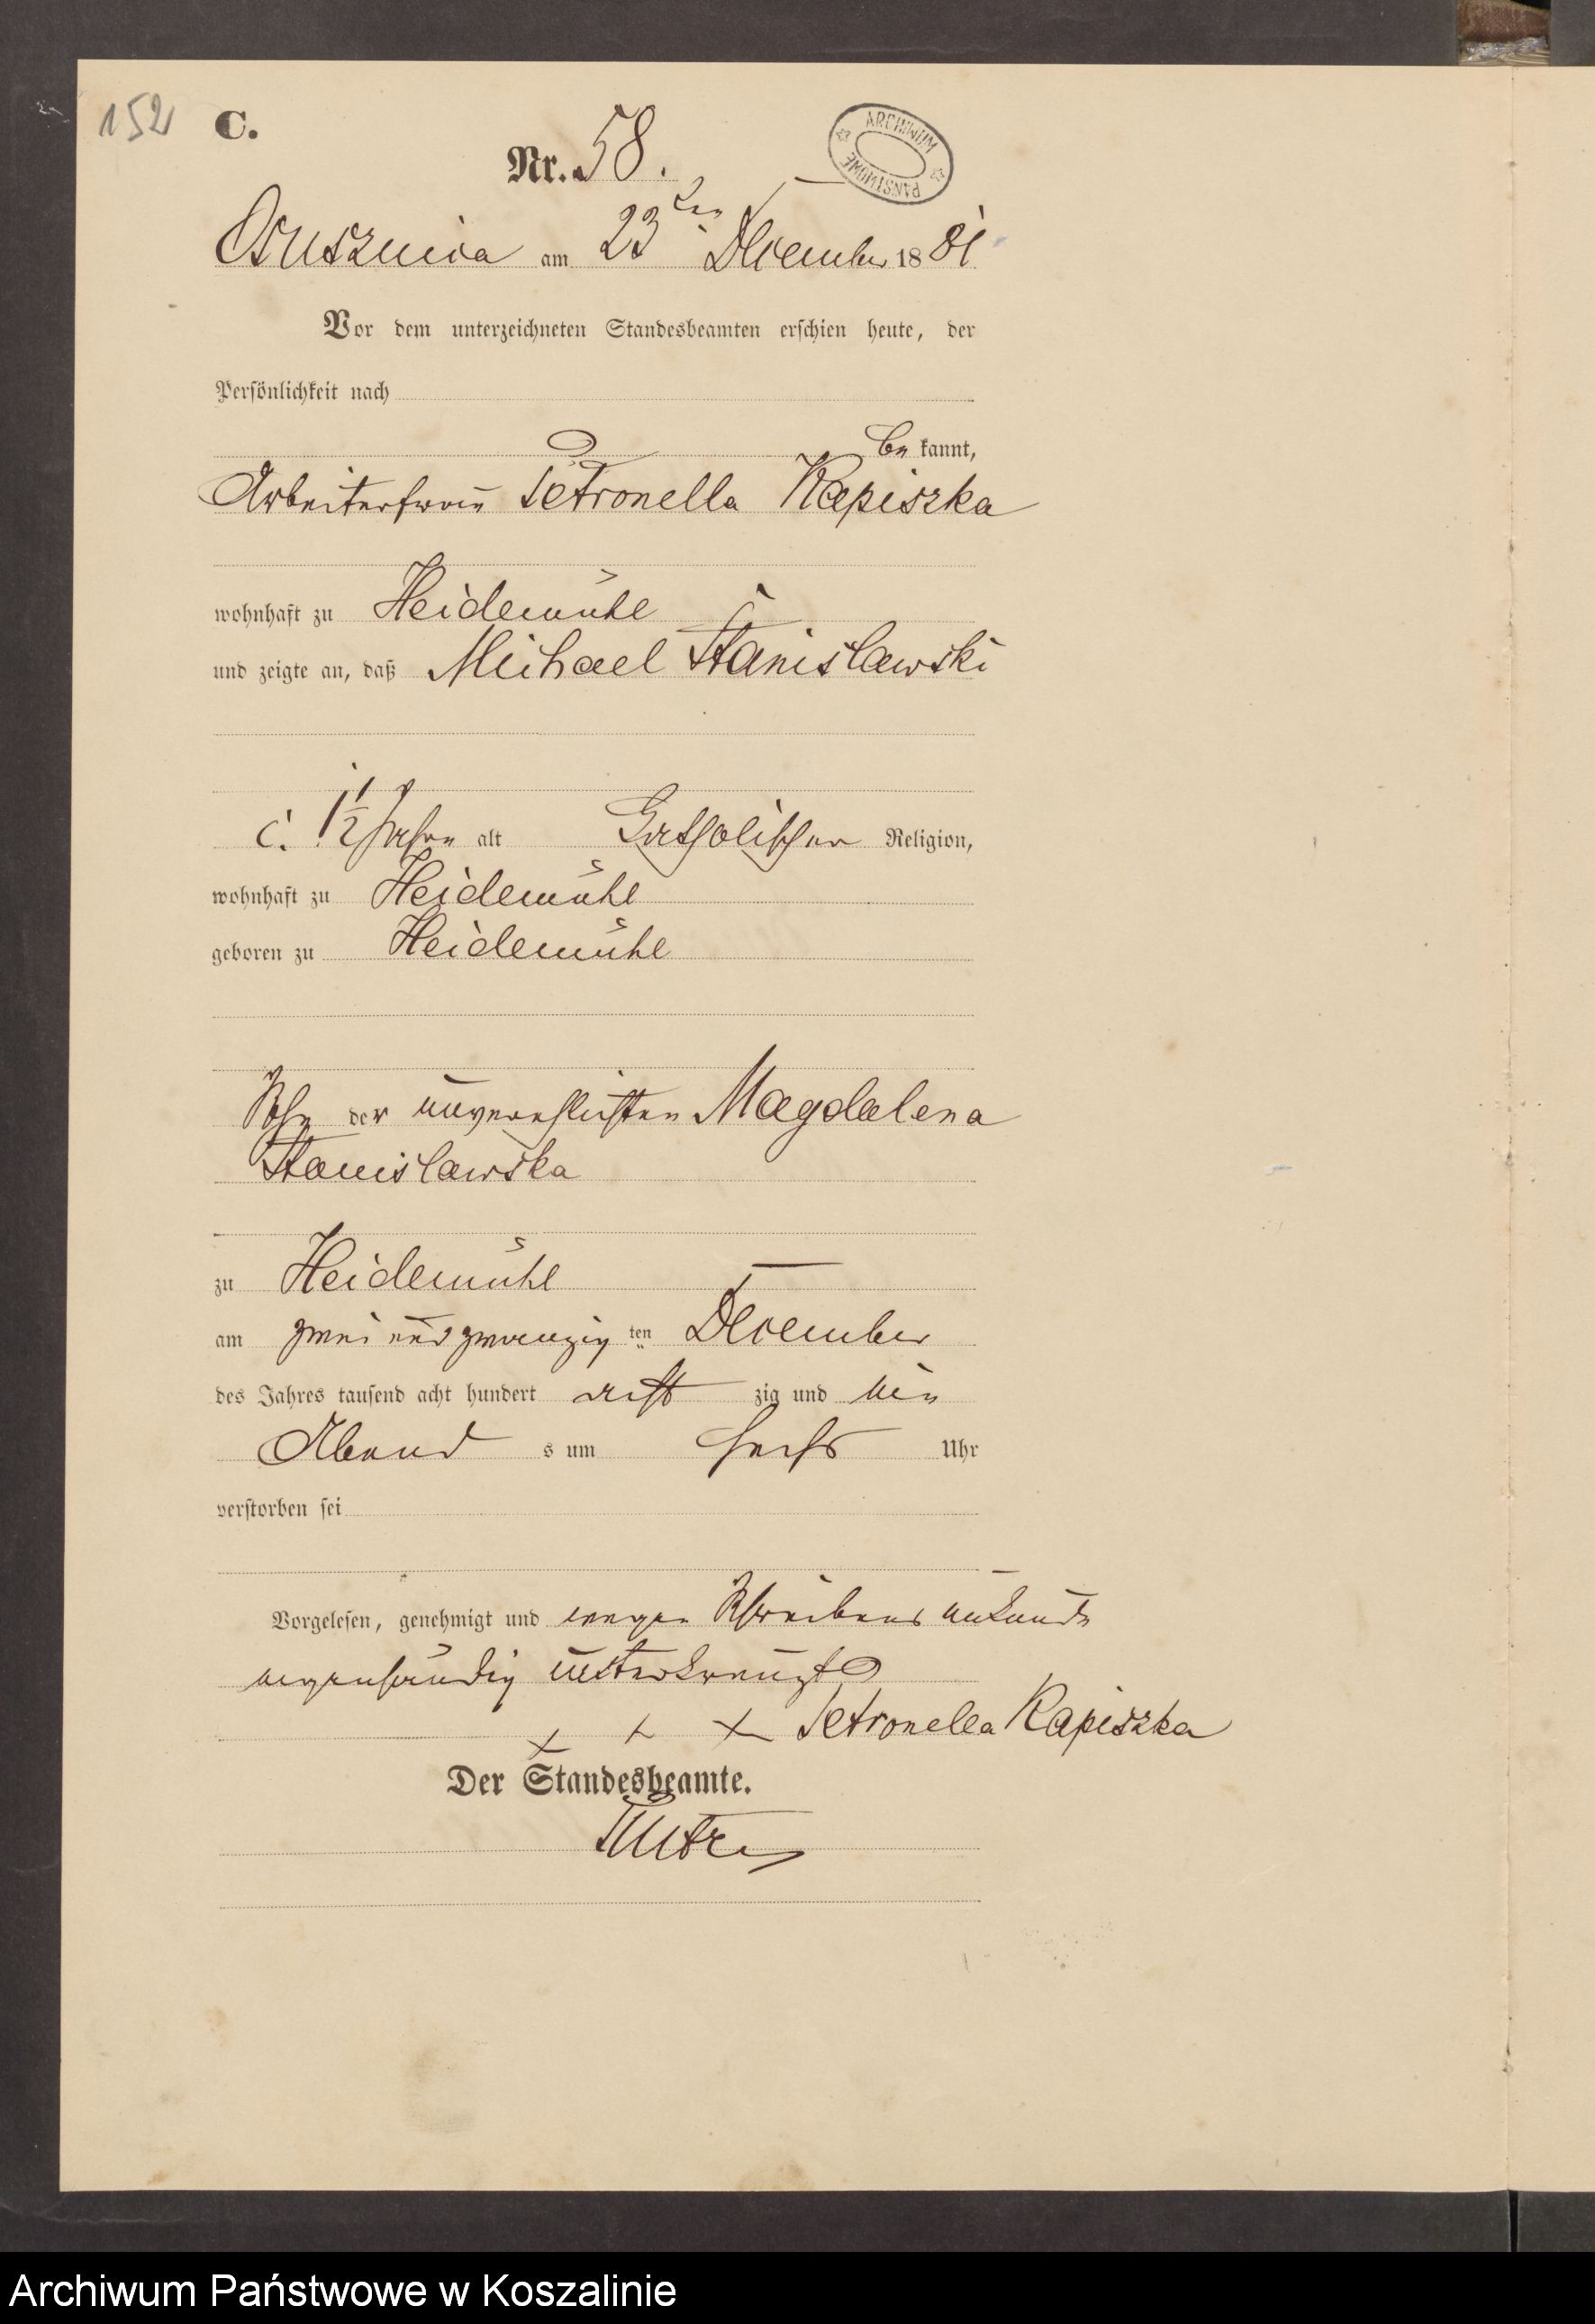 152 C.
ARCHIWUM PAŃSTWOWE
Nr. 58.
Osusznica am 23ten December 1881
Vor dem unterzeichneten Standesbeamten erschien heute, der
Persönlichkeit nach
be kannt,
Arbeiterfrau Petronella Kapiszka
wohnhaft zu Heidemühl
und zeigte an, daß Michael Stanislawski
c. 1 1/2 Jahre alt Catholischer Religion,
wohnhaft zu Heidemühl
geboren zu Heidemühl
Sohn der unverehlichten Magdalena
Stanislawska
zu Heidemühl
am zwei und zwanzig ten December
des Jahres tausend acht hundert acht zig und ein
Abend s um sechs Uhr
verstorben sei
Vorgelesen, genehmigt und wegen Schreibens unkunde
eigenhändig unterkreuzt
+ + + Petronella Kapiszka
Der Standesbeamte.
Archiwum Państwowe w Koszalinie